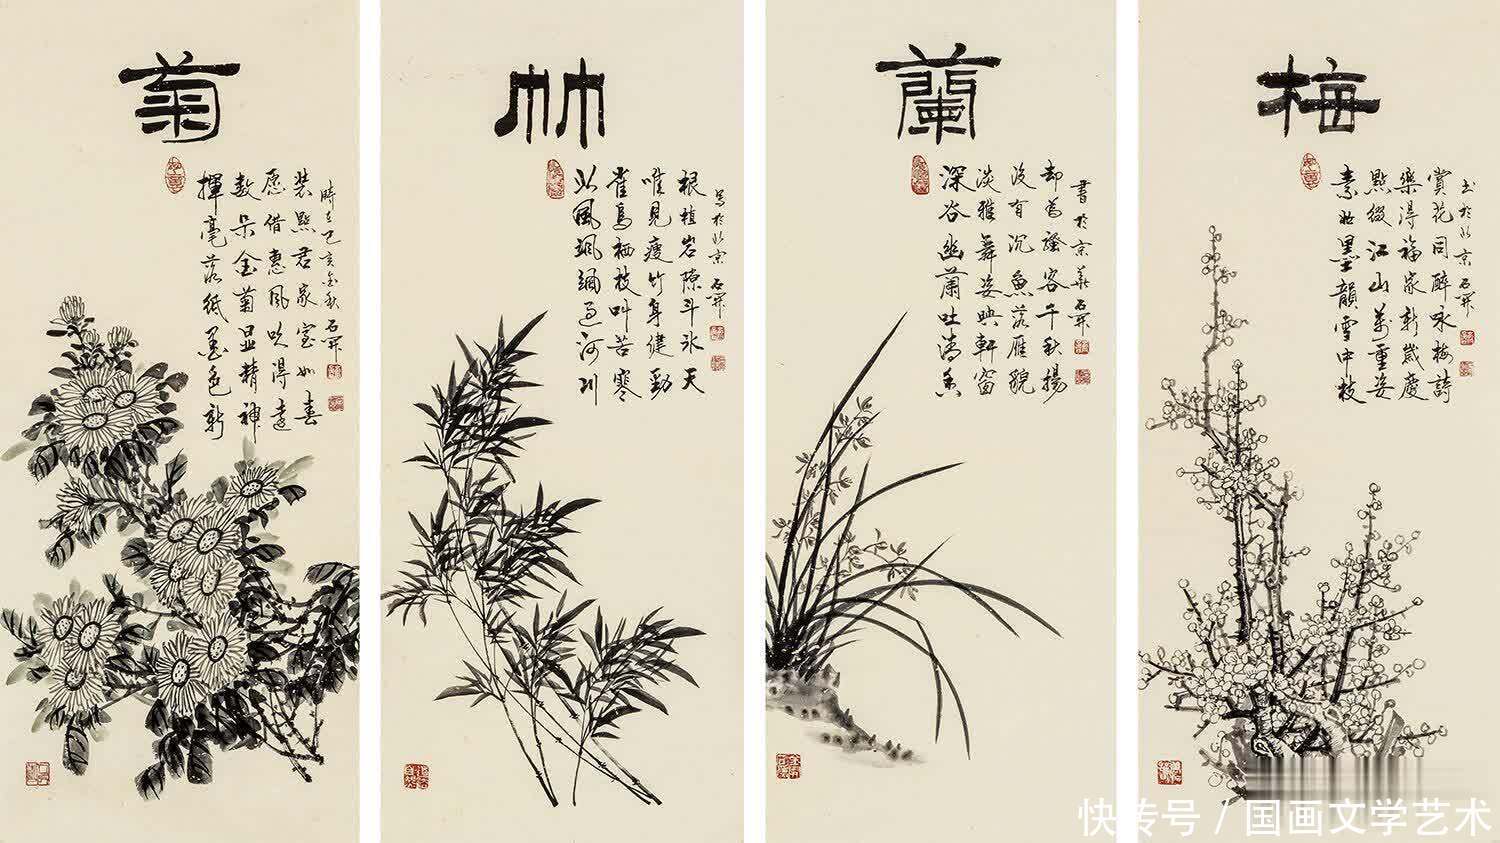 梅
素妝墨韻雪中枝
點綴江山萬重姿
樂得福家新歲慶
賞花同醉咏梅詩
書於北京 石開
蘭
深谷幽蘭吐清香
淡雅舞姿映軒窗
沒有沉魚落雁貌
却為騷客千秋揚
書於京華 石開
竹
北風颯颯過河川
雀鳥栖枝叫苦寒
唯見瘦竹身健勁
根植岩隙斗冰天
寫於北京 石開
菊
揮毫落紙墨色新
數朵金菊显精神
愿借惠風以得達
裝點君家室如春
時在己亥金秋 石開
快传号 / 国画文学艺术